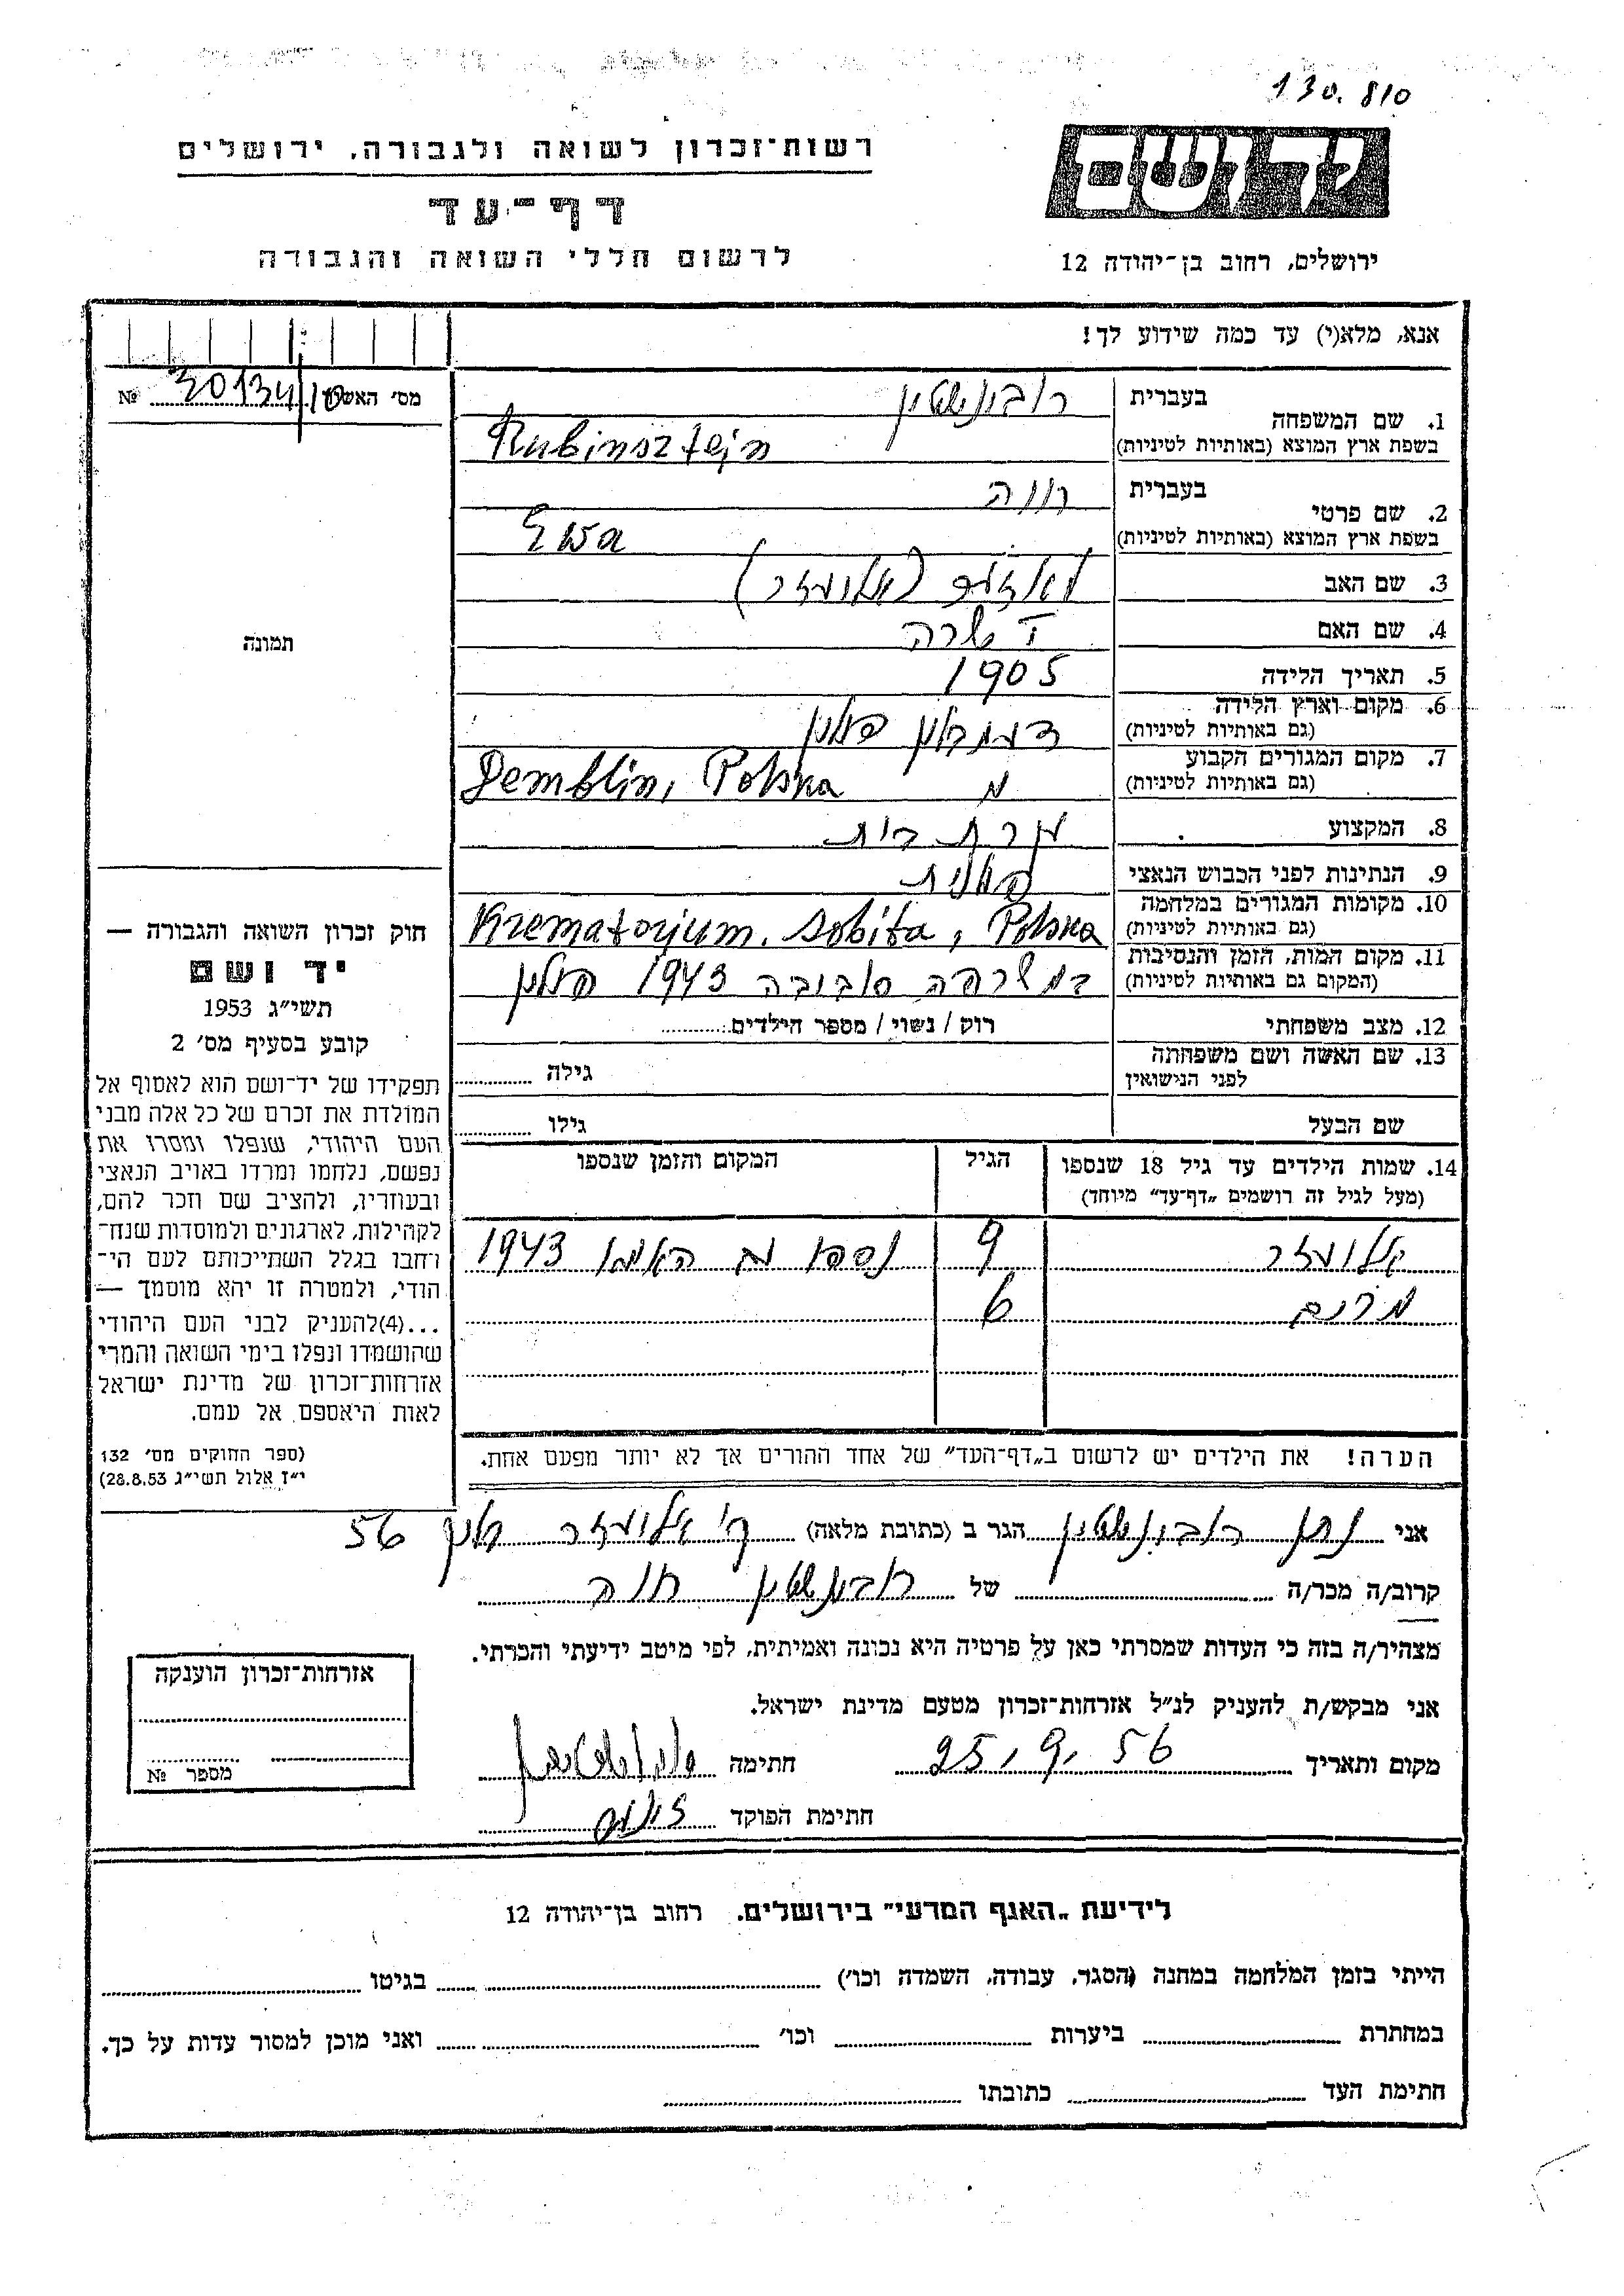 130.810
רשות־זכרון לשואה ולגבורה. ירושלים
דף־עד
לרשום חללי השואה והגבורה
יד ושם
ירושלים, רחוב בן־יהודה 12
אנא, מלא(י) עד כמה שידוע לך!
מס' האשה № 30134/10
1. שם המשפחה
בעברית רובינשטין
בשפת ארץ המוצא (באותיות לטיניות) Rubinsztejn
2. שם פרטי
בעברית חוה
בשפת ארץ המוצא (באותיות לטיניות) Ewa
3. שם האב (אליעזר)
4. שם האם שרה
5. תאריך הלידה 1905
6. מקום וארץ הלידה
(גם באותיות לטיניות) דעמבלין פולין
7. מקום המגורים הקבוע
(גם באותיות לטיניות) Demblin, Polska
8. המקצוע עקרת בית
9. הנתינות לפני הכבוש הנאצי פולנית
10. מקומות המגורים במלחמה
(גם באותיות לטיניות) Krematorjum. Sobiba, Polska
11. מקום המות, הזמן והנסיבות
(המקום גם באותיות לטיניות) במשרפה סביבה 1943 פולין
12. מצב משפחתי רוק / נשוי / מספר הילדים
13. שם האשה ושם משפחתה
לפני הנישואין גילה
שם הבעל גילו
14. שמות הילדים עד גיל 18 שנספו
(מעל לגיל זה רושמים „דף־עד" מיוחד)
הגיל
המקום והזמן שנספו
אליעזר 9 נספו עם האימו 1943
מרים 6
הערה! את הילדים יש לרשום ב„דף־העד" של אחד ההורים אך לא יותר מפעם אחת.
תמונה
חוק זכרון השואה והגבורה —
יד ושם
תשי"ג 1953
קובע בסעיף מס' 2
תפקידו של יד־ושם הוא לאסוף אל
המולדת את זכרם של כל אלה מבני
העם היהודי, שנפלו ומסרו את
נפשם, נלחמו ומרדו באויב הנאצי
ובעוזריו, ולהציב שם וזכר להם,
לקהילות, לארגונים ולמוסדות שנח־
רחבו בגלל השתייכותם לעם הי־
הודי, ולמטרה זו יהא מוסמך —
...(4)להעניק לבני העם היהודי
שהושמדו ונפלו בימי השואה והמרי
אזרחות־זכרון של מדינת ישראל
לאות היאספם אל עמם.
(ספר החוקים מס' 132
י"ז אלול תשי"ג 28.8.53)
אני נתן רובינשטין הגר ב (כתובת מלאה) ק' אליעזר 56
קרוב/ה מכר/ה של רובינשטין חוה
מצהיר/ה בזה כי העדות שמסרתי כאן על פרטיה היא נכונה ואמיתית, לפי מיטב ידיעתי והכרתי.
אני מבקש/ת להעניק לנ"ל אזרחות־זכרון מטעם מדינת ישראל.
מקום ותאריך 25.9.56 חתימה
חתימת הפוקד
אזרחות־זכרון הוענקה
מספר №
לידיעת „האגף המדעי" בירושלים. רחוב בן־יהודה 12
הייתי בזמן המלחמה במחנה (הסגר, עבודה, השמדה וכו') בגיטו
במחתרת ביערות וכו' ואני מוכן למסור עדות על כך.
חתימת העד כתובתו